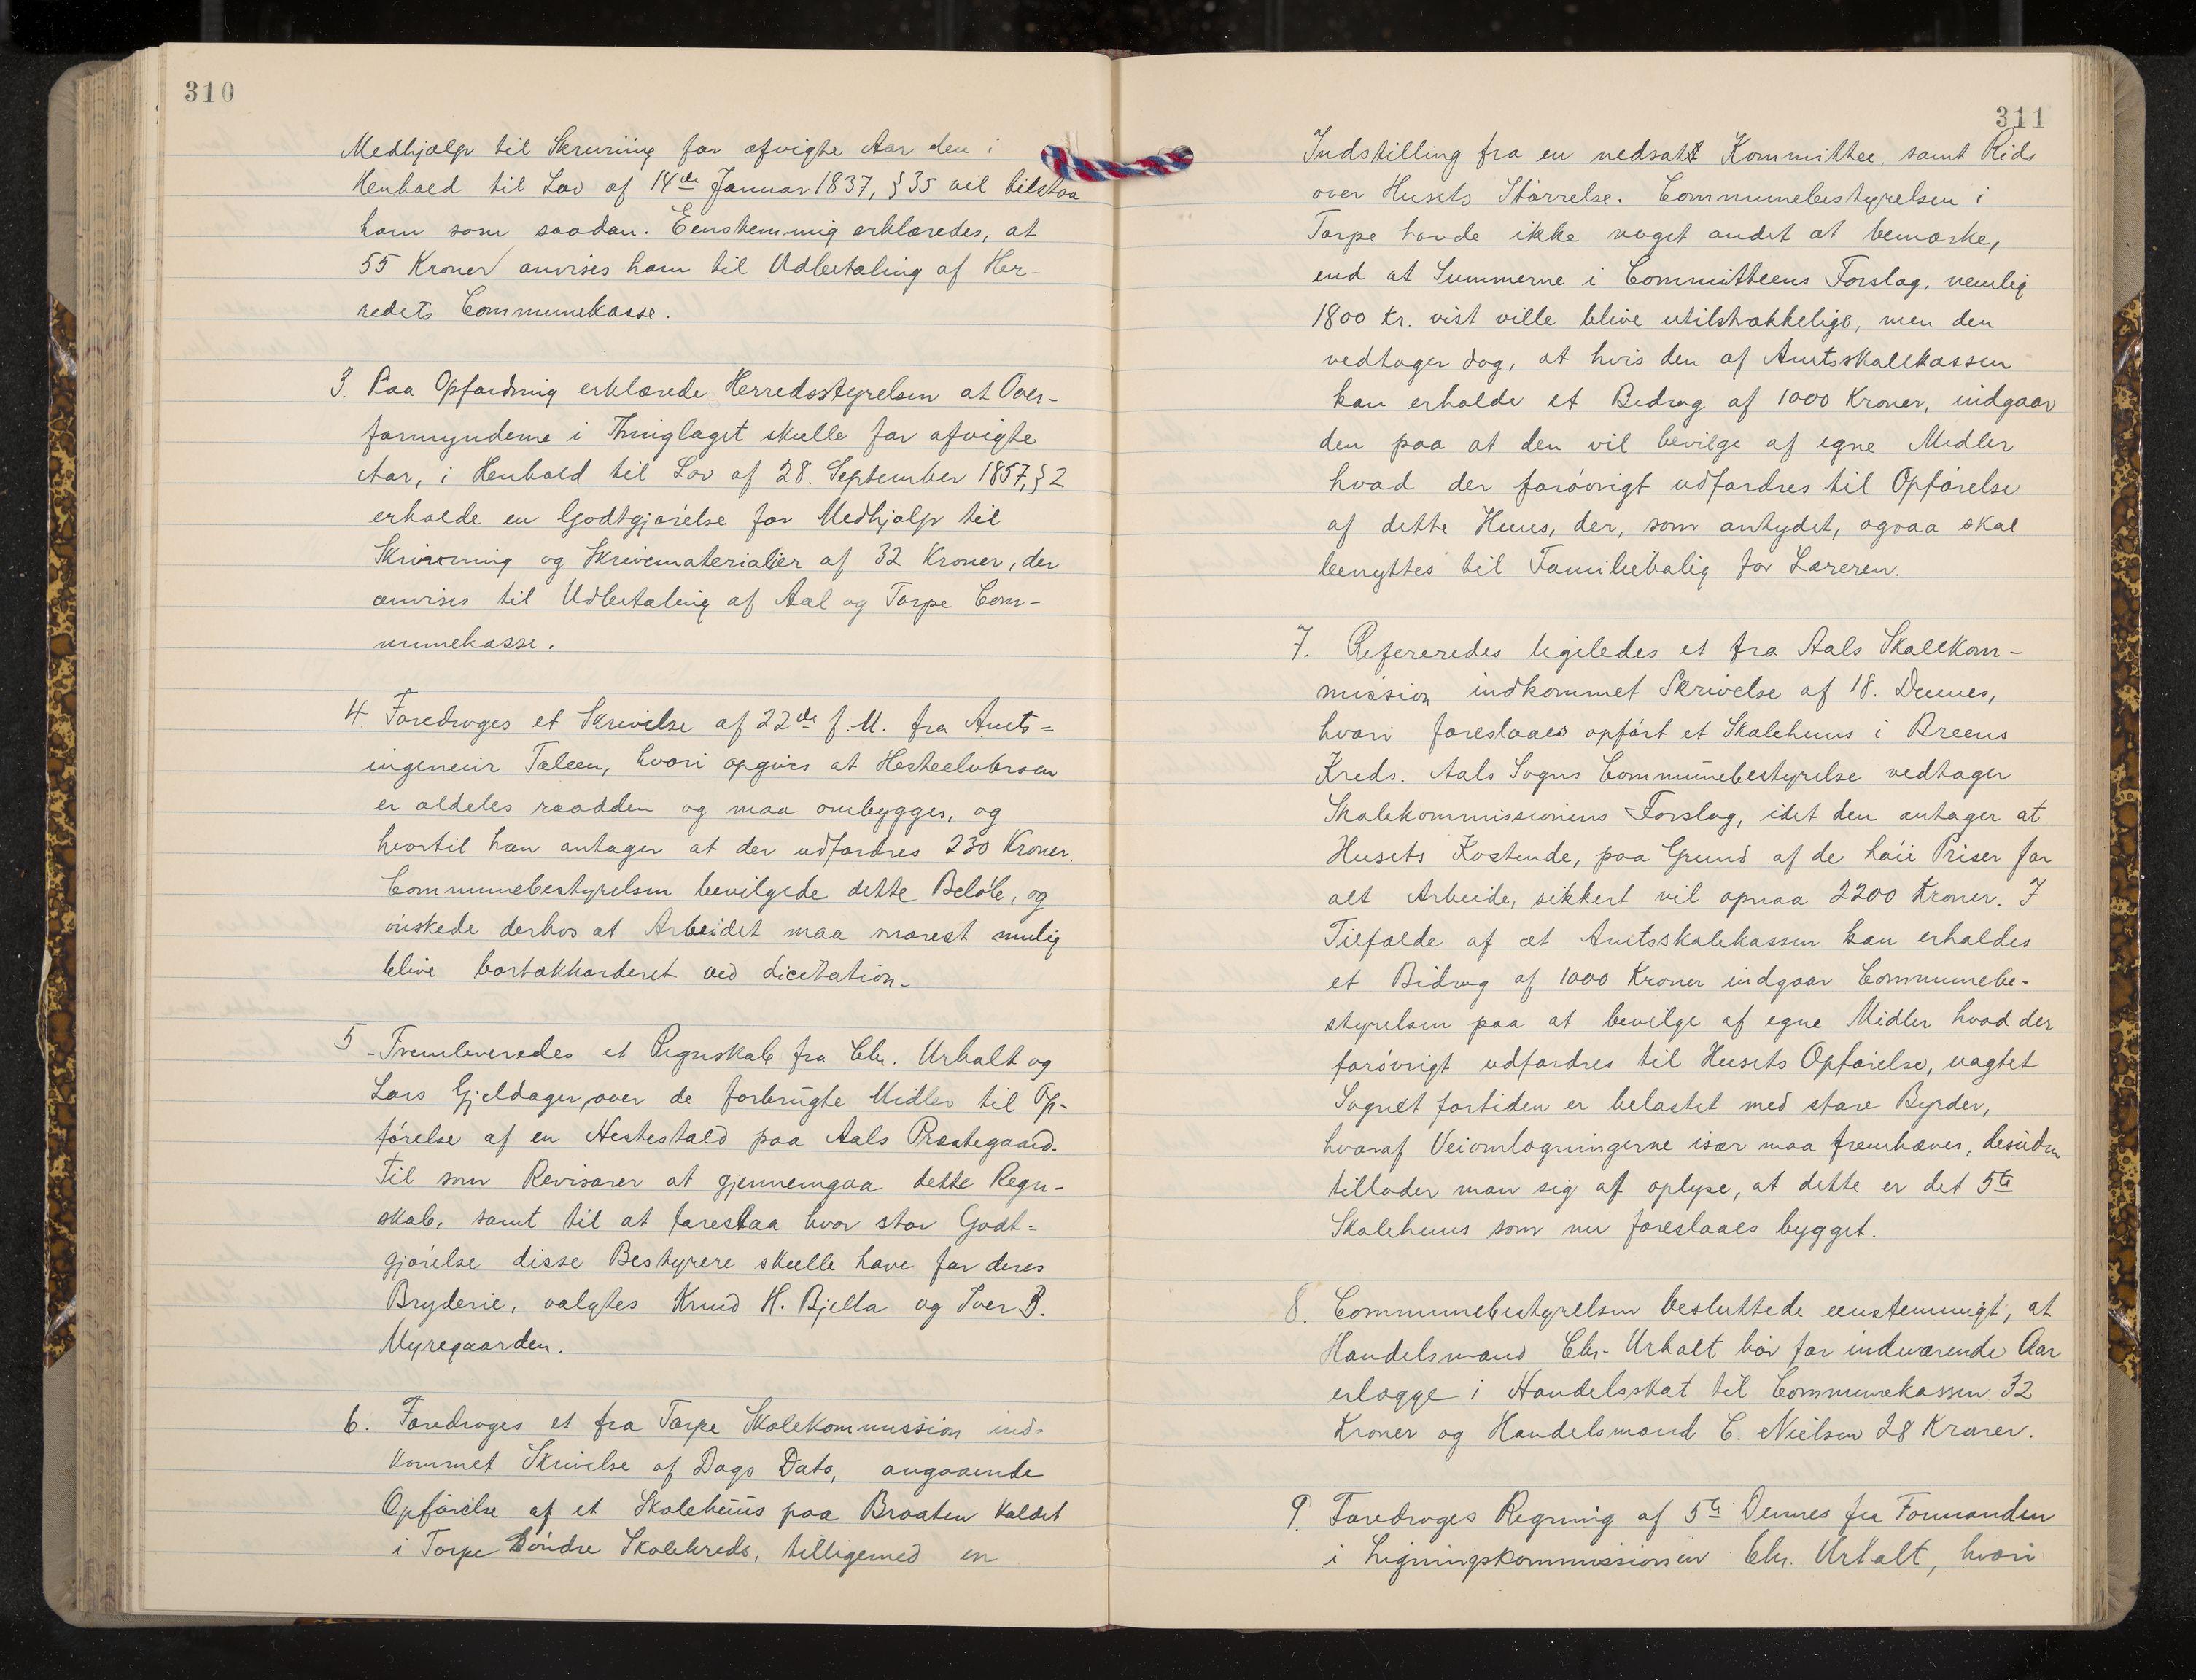 310
Medhjælp til Skrivning for afvigte Aar den i
Henhold til Lov af 14de Januar 1837, § 35 vil tilstaa
ham som saadan. Eenstemmig erklæredes, at
55 Kroner anvises ham til Udbetaling af Her-
redets Communekasse.
3. Paa Opfordring erklærede Herredsstyrelsen at Over-
formynderne i Thinglaget skulle for afvigte
Aar, i Henhold til Lov af 28. September 1857, § 2
erholde en Godtgjørelse for Medhjælp til
Skrivning og Skrivematerialier af 32 Kroner, der
anvises til Udbetaling af Aal og Torpe Com-
munekasse.
4. Foredroges et Skrivelse af 22de f. M. fra Amts=
ingeniør Taleen, hvori opgives at Hesteelvbroen
er aldeles raadden og maa ombygges, og
hvortil han antager at der udfordres 230 Kroner.
Communebestyrelsen bevilgede dette Beløb, og
ønskede derhos at Arbeidet maa snarest mulig
blive bortakkorderet ved Licitation.
5. Fremleveredes et Regnskab fra Chr. Urhalt og
Lars Gjeldager, over de forbrugte Midler til Op-
førelse af en Hestestald paa Aals Præstegaard.
Til som Revisorer at gjennemgaa dette Regn-
skab, samt til at foreslaa hvor stor Godt=
gjørelse disse Bestyrere skulle have for deres
Bryderie, valgtes Knud H. Bjella og Iver B.
Myregaarden.
6. Foredroges et fra Torpe Skolekommission ind-
kommet Skrivelse af Dags Dato, angaaende
Opførelse af et Skolehuus paa Braaten kaldet
i Torpe Søndre Skolekreds, tilligemed en
311
Indstilling fra en nedsatt Kommittee, samt Rids
over Husets Størrelse. Communebestyrelsen i
Torpe havde ikke noget andet at bemærke,
end at Summerne i Committeens Forslag, nemlig
1800 kr. vist ville blive utilstrækkelige, men den
vedtager dog, at hvis den af Amtsskolekassen
kan erholde et Bidrag af 1000 Kroner, indgaar
den paa at den vil bevilge af egne Midler
hvad der forøvrigt udfordres til Opførelse
af dette Huus, der, som antydet, ogsaa skal
benyttes til Familiebolig for Læreren.
7. Refereredes ligeledes et fra Aals Skolekom-
mission indkommet Skrivelse af 18. Dennes,
hvori foreslaaes opført et Skolehuus i Breens
Kreds. Aals Sogns Communebestyrelse vedtager
Skolekommissionens Forslag, idet den antager at
Husets Kostende, paa Grund af de høie Priser for
alt Arbeide, sikkert vil opnaa 2200 Kroner. I
Tilfælde af at Amtsskolekassen kan erholdes
et Bidrag af 1000 Kroner indgaar Communebe-
styrelsen paa at bevilge af egne Midler hvad der
forøvrigt udfordres til Husets Opførelse, uagtet
Sognet fortiden er belastet med store Byrder,
hvoraf Veiomlægningerne især maa fremhæves, desuden
tillader man sig at oplyse, at dette er det 5te
Skolehuus som nu foreslaaes bygget.
8. Communebestyrelsen besluttede eenstemmigt, at
Handelsmand Chr. Urhalt bør for indeværende Aar
erlægge i Handelsskat til Communekassen 32
Kroner og Handelsmand C. Nielsen 28 Kroner.
9. Foredroges Regning af 5te Dennes fra Formanden
i Ligningskommissionen Chr. Urhalt, hvori